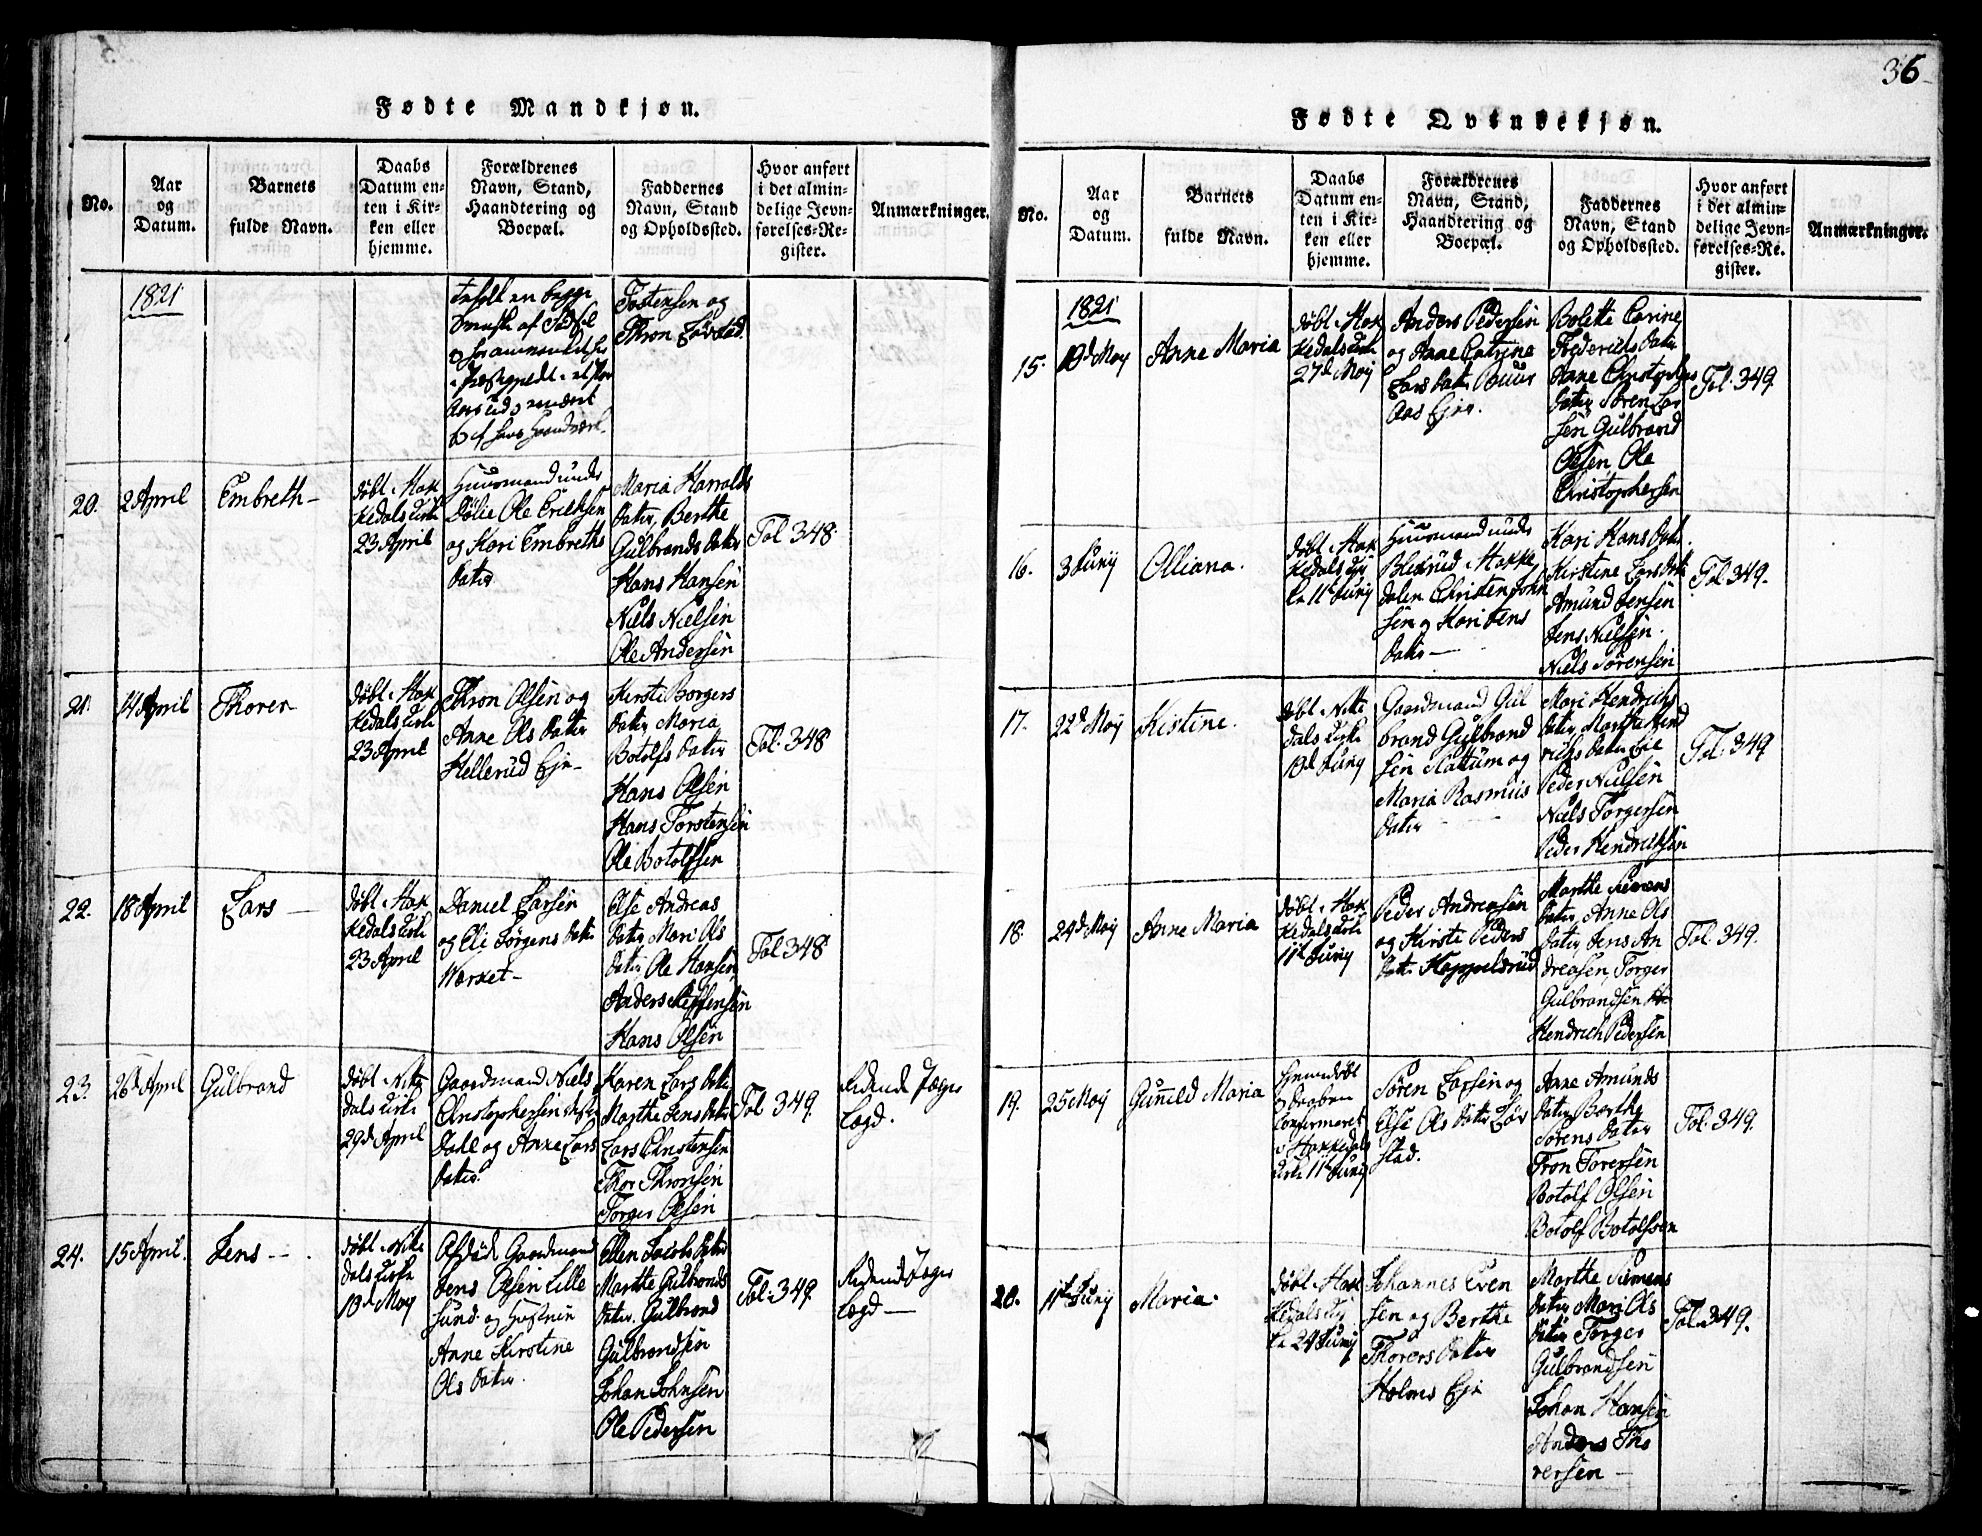 36
Fødte Mandkjøn.
No.
Aar
og
Datum.
Barnets
fulde Navn.
Daabs
Datum en-
ten i Kir-
ken eller
hjemme.
Forældrenes
Navn, Stand,
Haandtering og
Boepæl.
Faddernes
Navn, Stand
og Opholdssted.
Hvor anført
i det almin-
delige Jevn-
førelses-Re-
gister.
Anmærkninger.
1821
af
Tostensen og
Thron Løvstad
20.
2 April
Embreth
døbt i Hak
kedals Kirke
23 April
Huusmand under
Dølie Ole Eriksen
og Kari Embreths
datter
Maria Harralds
datter, Berthe
Gulbrands datter
Hans Hansen
Niels Nielsen
Ole Andersen
Fol 348
21.
14 April
Thorer
døbt i Hak
kedals Kirke
23 April
Thron Olsen og
Anne Ols datter
Hellerud Eje
Kirsti Borgers
datter Maria
Botolfs datter
Hans Olsen
Hans Torstensen
Ole Botolfsen
Fol. 348
22.
18 April
Lars
døbt i Hak
kedals Kirke
23 April
Daniel Larsen
og Eli Jørgens datter
Værket
Else Andreas
datter Mari Ols
datter Ole Hansen
Anders Steffensen
Hans Olsen
Fol 348
23.
26d April
Gulbrand
døbt i Nitte
dals Kirke
29d April
Gaardmand Niels
Christophersen
Dahl og Anne Lars
datter
Karen Lars datter
Marthe Jens datter
Lars Christensen
Thor Thronsen
Torger Olsen
Fol 349.
Lægd.
24.
15 April.
Jens
døbt i Nitte
dals Kirke
10d Maj
Afdøde Gaardmand
Jens Olsen Lille
sund og Hustruen
Anne Kirstine
Ols datter
Ellen Jacobs datter
Marthe Gulbrands
datter Gulbrand
Gulbrandsen
Johan Johnsen
Ole Pedersen
Fol. 349
Lægd
Fødte Qvindekjøn.
No.
Aar
og
Datum.
Barnets
fulde Navn.
Daabs
Datum en-
ten i Kir-
ken eller
hjemme.
Forældrenes
Navn, Stand,
Haandtering og
Boepæl.
Faddernes
Navn, Stand
og Opholdssted.
Hvor anført
i det almin-
delige Jevn-
førelses-Re-
gister.
Anmærkninger.
1821
15.
19d Maj
Anne Maria
døbt i Hak
kedals Kirke
27d Maj
Anders Pedersen
og Anne Catrine
Lars datter Buur
Aas Ejer.
Bolette Carine
Frederichs datter
Anne Christophers
datter Søren Lar
sen Gulbrand
Olsen, Ole
Christophersen
Fol. 349.
16.
3 Junij
Olliana.
døbt i Hak
kedals Kir
ke 11t Junij
Huusmand under
Hakke
dalen Christen John
sen og Kari Jens
datter
Kari Hans datter
Kirstine Lars datter
Amund Jensen
Jens Nielsen.
Niels Sørensen
Fol 349.
17.
22d Maj
Kistine.
døbt i Nitte
dals Kirke
10d Junij
Gaardmand Gul
brand Gulbrand
sen Slattum og
Maria Rasmus
datter
Mari Hendrichs
datter, Marthe Hend
richs datter
Peder Nielsen
Niels Torgersen
Peder Hendrichsen
Fol. 349
18.
24d Maj
Anne Maria
døbt i Hak
kedals Kirke
11t Junij
Peder Andreasen
og Kirsti Peders
datter Kappelsrud
Marthe Simens
datter, Anne Ols
datter Jens An
dreasen, Torger
Gulbrandsen
Hendrich Pedersen
Fol. 349.
19.
25 Maj
Gunild Maria
hjemmedøbt
og Daaben
Confirmeret
i Hakkedals
Kirke 11t Junij
Søren Larsen og
Else Ols datter Løv
stad.
Anne Amunds
datter Barthe
Sørens datter
Tron Torersen
Botolf Olsen
Botolf Botolfsen
Fol. 349.
20.
11t Junij
Maria.
døbt i Hak
kedals Kir
ke 24 Junij
Johannes Even
sen og Berthe
Thorers datter
Holms Eje
Marthe Simens
datter Mari Ols
datter Torger
Gulbrandsen
Johan Hansen
Anders Tho
rersen
Fol. 349.